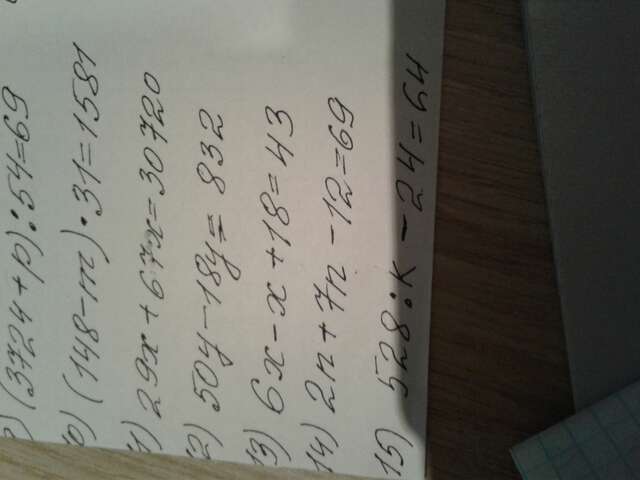 9) (3724+p):54=69
10) (148-m)·31=1581
11) 29x+67x=30720
12) 50y-18y=832
13) 6x-x+18=43
14) 2n+7n-12=69
15) 528:k-24=64